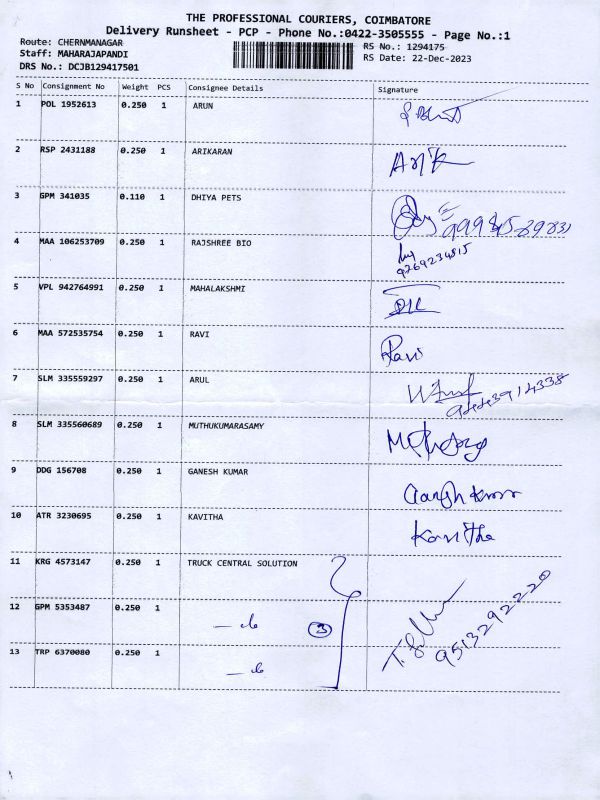 THE PROFESSIONAL COURIERS, COIMBATORE
Delivery Runsheet - PCP - Phone No.:0422-3505555 - Page No.:1
Route: CHERNMANAGAR
Staff: MAHARAJAPANDI
DRS No.: DCJB129417501
RS No.: 1294175
RS Date: 22-Dec-2023
S No Consignment No Weight PCS Consignee Details Signature
1 POL 1952613 0.250 1 ARUN
2 RSP 2431188 0.250 1 ARIKARAN
3 GPM 341035 0.110 1 DHIYA PETS
4 MAA 106253709 0.250 1 RAJSHREE BIO
9269234815
5 VPL 942764991 0.250 1 MAHALAKSHMI
6 MAA 572535754 0.250 1 RAVI Ravi
7 SLM 335559297 0.250 1 ARUL
9443914338
8 SLM 335560689 0.250 1 MUTHUKUMARASAMY
9 DDG 156708 0.250 1 GANESH KUMAR
10 ATR 3230695 0.250 1 KAVITHA Kavitha
11 KRG 4573147 0.250 1 TRUCK CENTRAL SOLUTION
12 GPM 5353487 0.250 1 3
13 TRP 6370080 0.250 1
9513292220